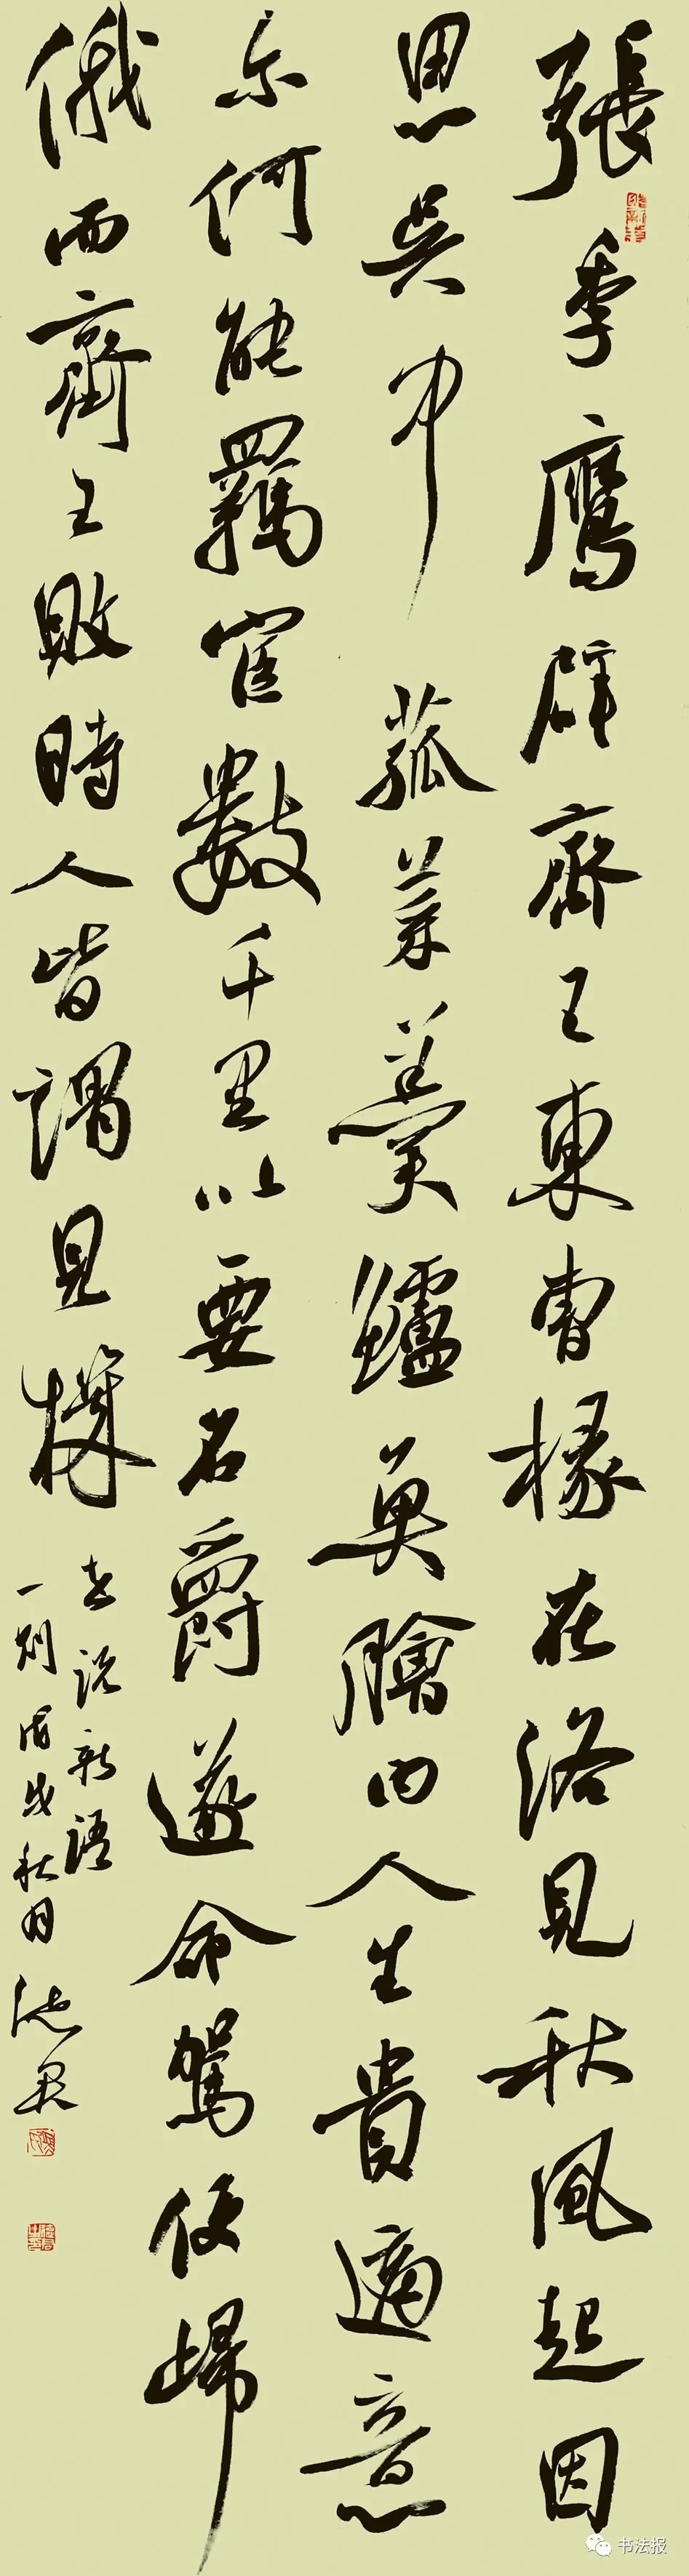 張季鷹辟齊王東曹掾在洛見秋風起因
思吳中菰菜羹鱸魚膾曰人生貴適意
尔何能羈宦數千里以要名爵遂命駕便歸
俄而齊王敗時人皆謂見機
世説新語
一則戊戌秋月
书法报